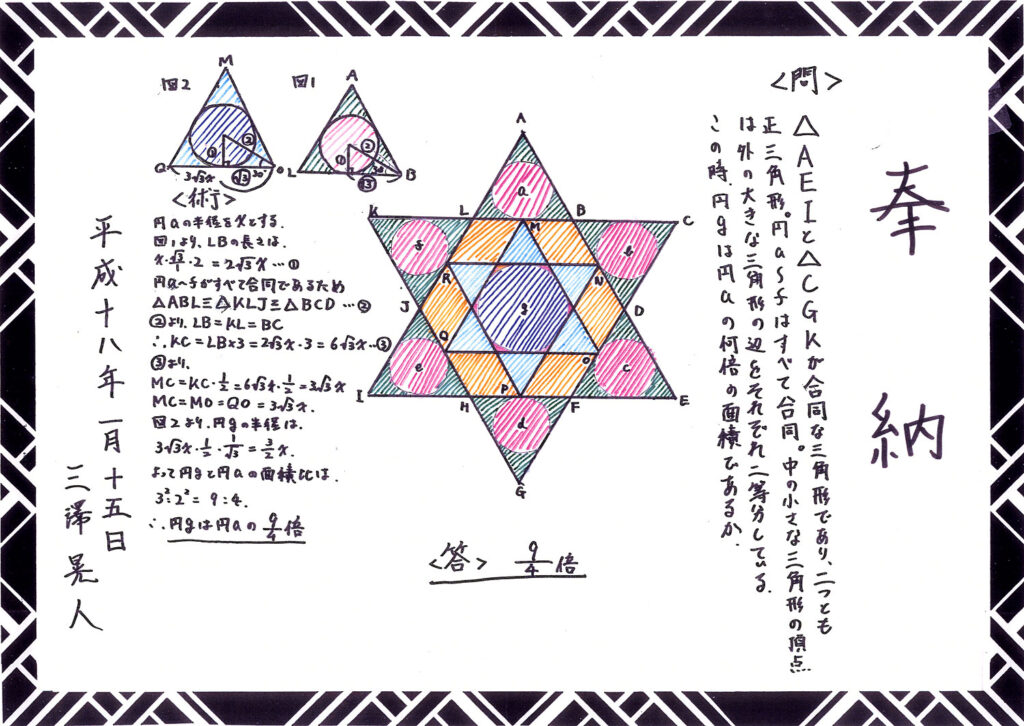 奉納
<問>
△AEIと△CGKが合同な三角形であり、二つとも
正三角形。円a〜fはすべて合同。中の小さな三角形の頂点
は外の大きな三角形の辺をそれぞれ二等分している。
この時、円gは円aの何倍の面積であるか。
A
K
L
B
C
M
a
f
b
R
N
J
g
D
Q
O
e
c
I
P
H
F
E
d
G
図1
A
①
②
30°
√3
L
B
図2
M
①
②
30°
√3
Q
3√3x
O
<術>
円aの半径をxとする.
図1より、LBの長さは.
x・√3/1・2=2√3x…①
円a〜fがすべて合同であるため
△ABL≡△KLJ≡△BCD…②
②より、LB=KL=BC
∴KC=LB×3=2√3x・3=6√3x…③
③より.
MC=KC・1/2=6√3x・1/2=3√3x
MC=MO=QO=3√3x.
図2より.円gの半径は.
3√3x・1/2・1/√3=3/2x.
よって円gと円aの面積比は.
3²:2²=9:4.
∴円gは円aの9/4倍
<答> 9/4倍
平成十八年一月十五日
三澤晃人